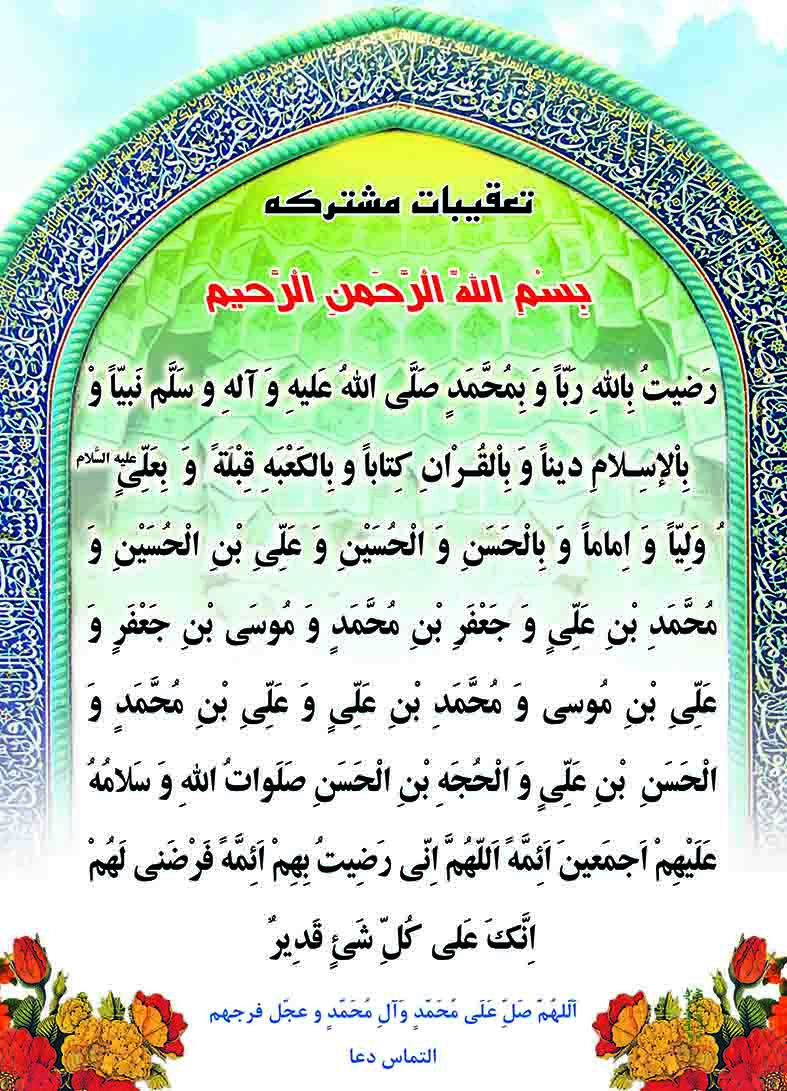 تعقیبات مشترکه
بِسْمِ اللهِّ الْرَّحَمنِ الْرَّحیم
رَضیتُ بِاللهِ رَبّاً وَ بِمُحَّمَدٍ صَلَّی اللهُ عَلیهِ وَ آلهِ و سَلَّم نَبیّاً وْ
بِاْلإسِـلامِ دیناً وَ بِاْلقُـرْانِ کِتاباً و بِالکَعْبَهِ قِبْلَةً وَ بِعَلّیٍ علیه السَّلام
ُ وَلیّاً وَ اِماماً وَ بِالْحَسَنِ وَ الْحُسَیْنِ وَ عَلّیِ بْنِ الْحُسَیْنِ وَ
مُحَّمَدِ بْنِ عَلّیٍ وَ جَعْفَرِ بْنِ مُحَّمَدٍ وَ مُوسَی بْنِ جَعْفَرٍ وَ
عَلّیِ بْنِ مُوسی وَ مُحَّمَدِ بْنِ عَلّیٍ وَ عَلّیِ بْنِ مُحَّمَدٍ وَ
الْحَسَنِ بْنِ عَلّیٍ وَ الْحُجَهِ بْنِ الْحَسَنِ صَلَواتُ اللهِ وَ سَلامُهُ
عَلَیْهِمْ اَجمَعینَ اَئِمَّهً اَللّهُمَّ اِنّی رَضِیتُ بِهِمْ اَئِمَّهً فَرْضَنی لَهُمْ
اِنَّکَ عَلی کُلِّ شَئٍ قَدِیرٌ
اَللهُمّ صَلِّ عَلَی مُحَمّدٍ وَآلِ مُحَمّدٍ و عجّل فرجهم
التماس دعا